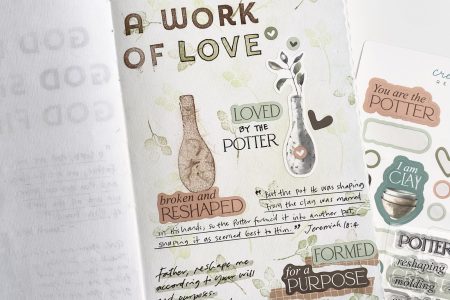 A WORK
OF LOVE
LOVED
BY THE
POTTER
broken and
RESHAPED
"But the pot He was shaping
from the clay was marred
in His hands, so the Potter formed it into another pot,
shaping it as seemed best to Him."
Jeremiah 18:4
Father, reshape me
according to Your will
and purposes.
FORMED
for a
PURPOSE
You are the
POTTER
I am
CLAY
POTTER
reshaping
molding
GOD
GOD IS
GOD